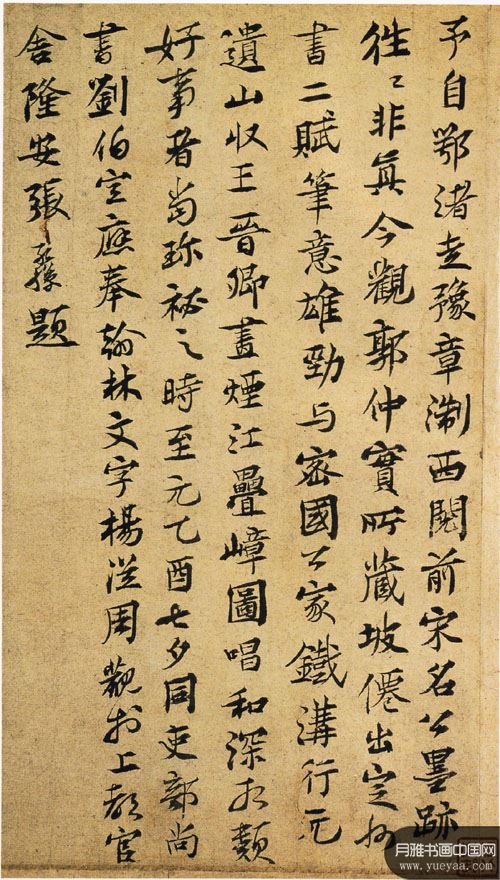 予自鄂渚走豫章淛西閱前宋名公墨跡
往〻非真今觀郭仲實所藏坡僊出定州
書二賦筆意雄勁与密國公家鐵溝行元
遺山收王晉卿畫煙江疊嶂圖唱和深相類
好事者當珍祕之時至元乙酉七夕同吏部尚
書劉伯宣應奉翰林文字楊從周觀於上都官
舍隆安張孔孫題
月雅书画中国网
www.yueyaa.com